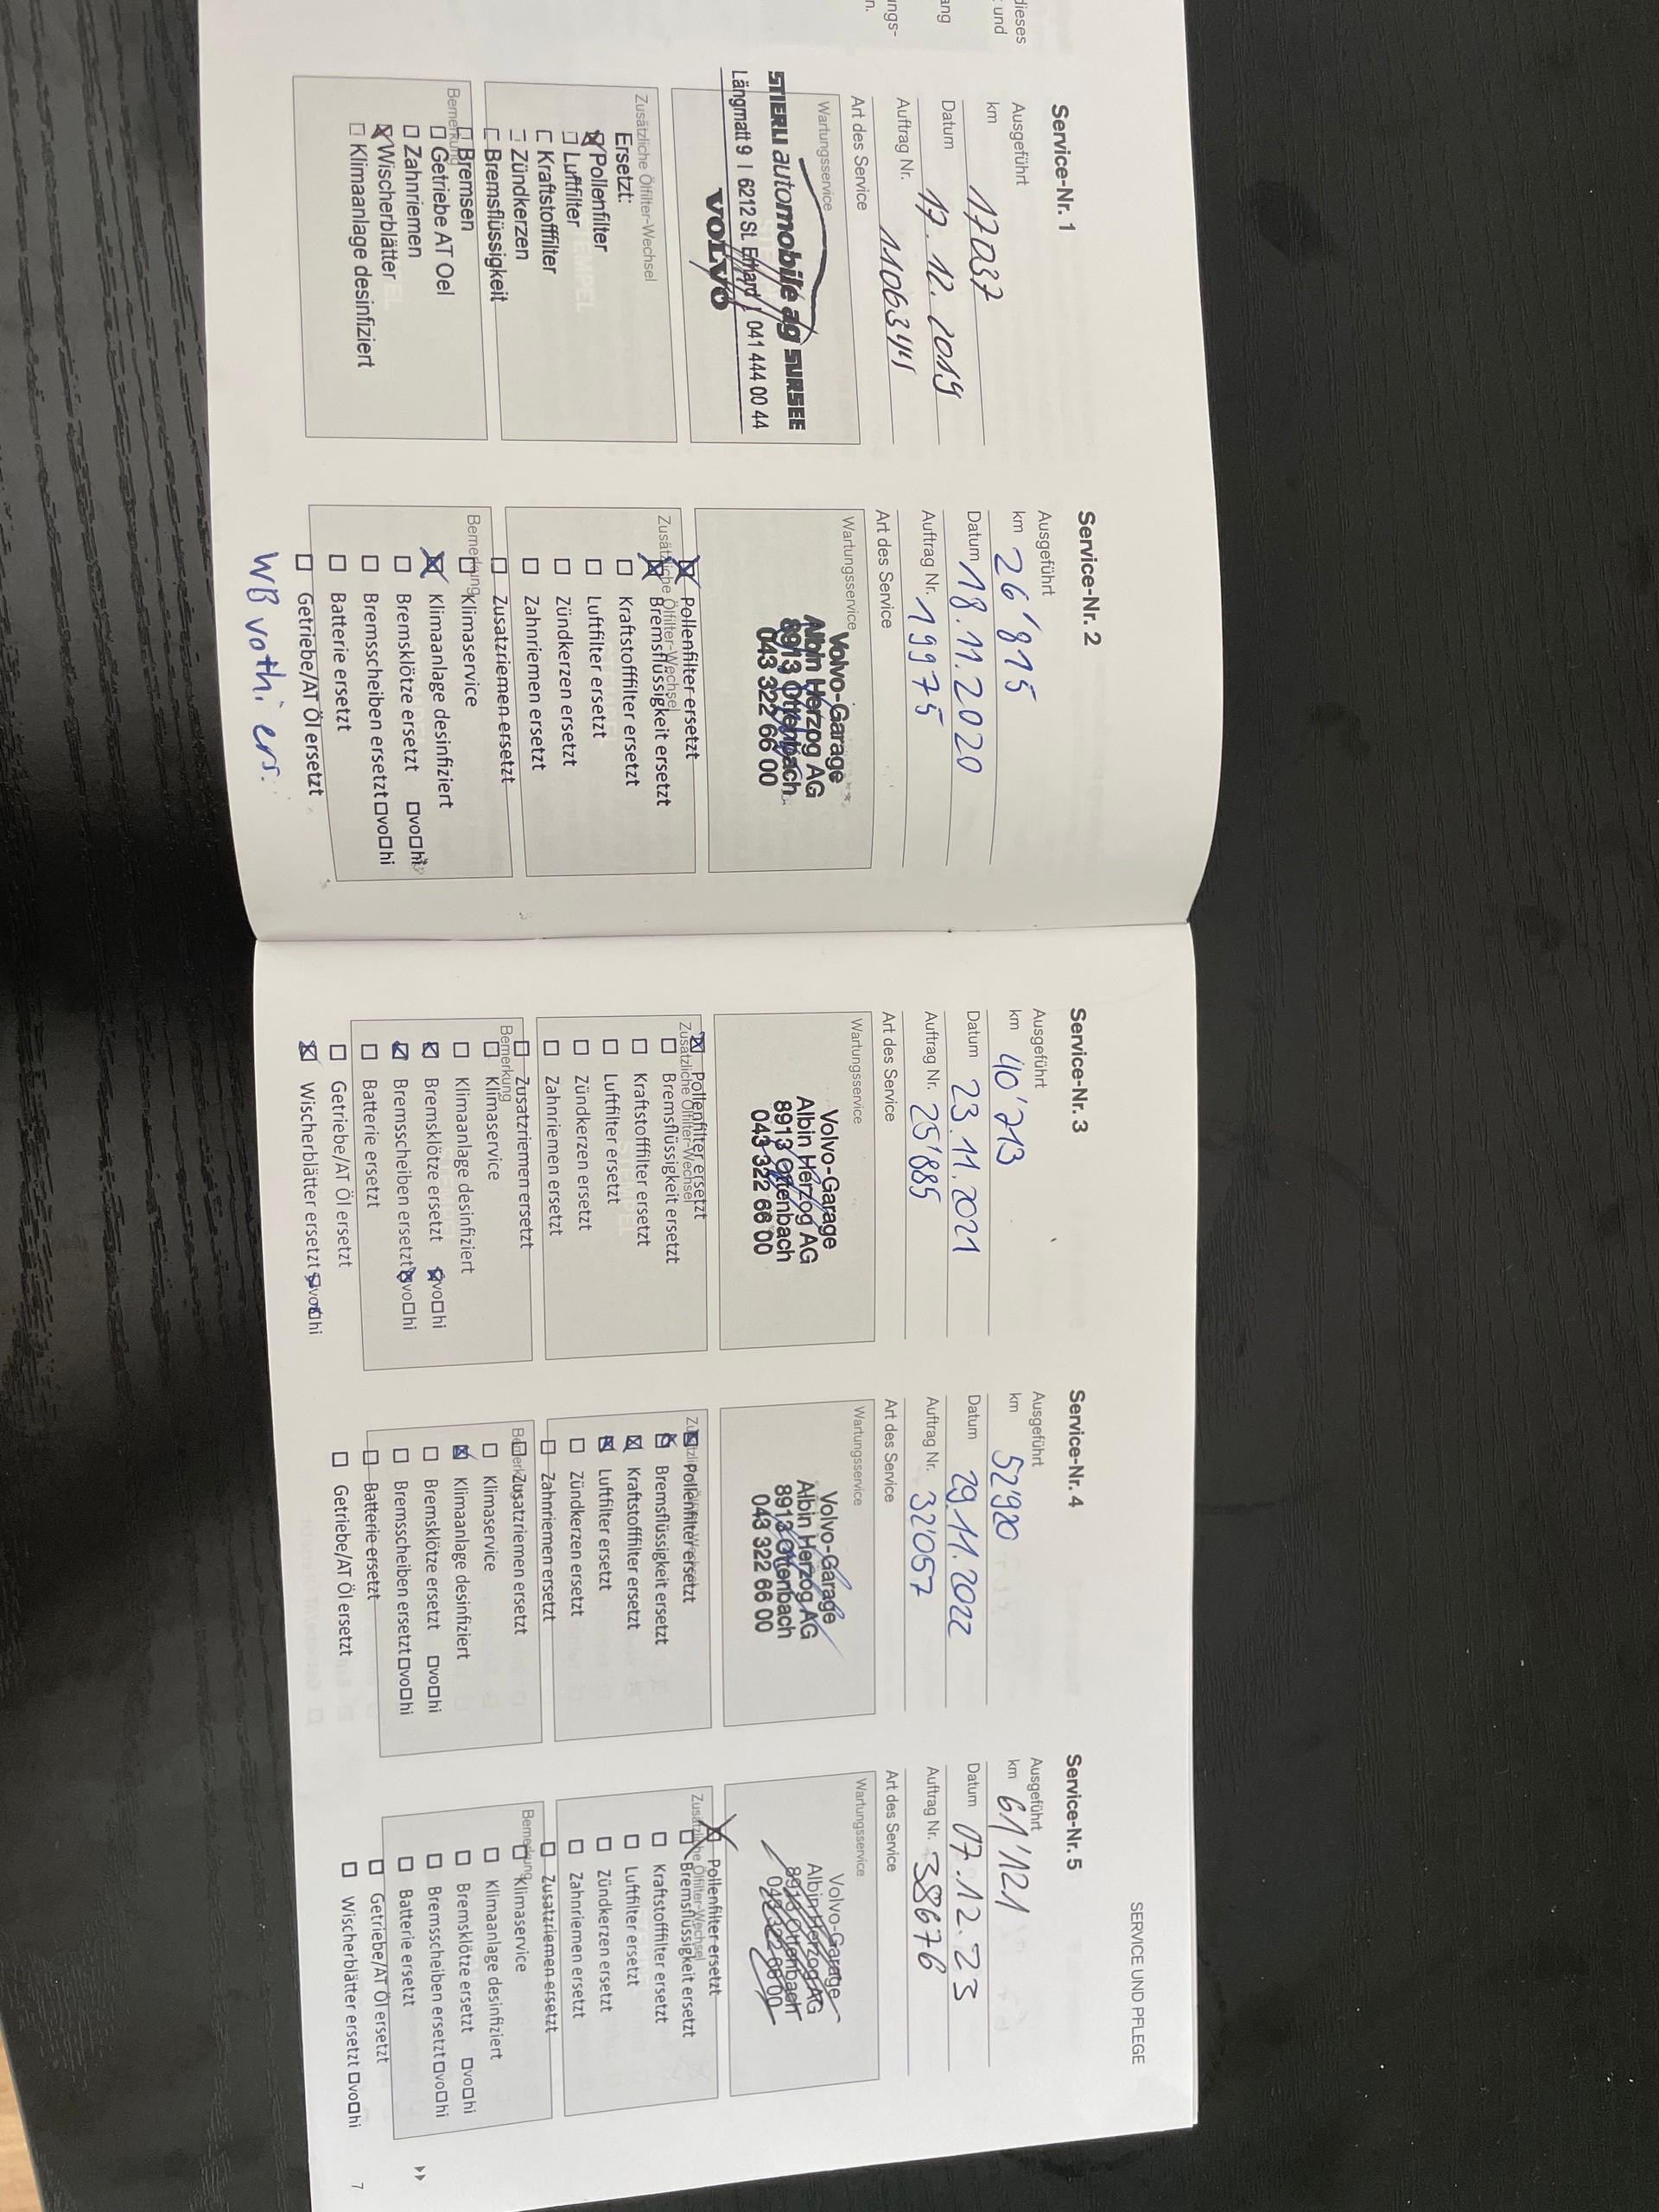 dieses
und
ang
ngs-
n.
Service-Nr. 1
Ausgeführt
km 17037
Datum 17.12.2019
Auftrag Nr. 1106344
Art des Service
Wartungsservice
STIERLI automobile ag SURSEE
Längmatt 9 | 6212 St. Erhard | 041 444 00 44
VOLVO
Zusätzliche Ölfilter-Wechsel
Ersetzt:
Pollenfilter
Luftfilter
Kraftstofffilter
Zündkerzen
Bremsflüssigkeit
Bremsen
Bemerkung
Getriebe AT Oel
Zahnriemen
Wischerblätter
Klimaanlage desinfiziert
Service-Nr. 2
Ausgeführt
km 26'815
Datum 18.11.2020
Auftrag Nr. 19975
Art des Service
Wartungsservice
Volvo-Garage
Albin Herzog AG
8913 Ottenbach
043 322 66 00
Pollenfilter ersetzt
Zusätzliche Ölfilter-Wechsel
Bremsflüssigkeit ersetzt
Kraftstofffilter ersetzt
Luftfilter ersetzt
Zündkerzen ersetzt
Zahnriemen ersetzt
Zusatzriemen ersetzt
Bemerkung
Klimaservice
Klimaanlage desinfiziert
Bremsklötze ersetzt vo hi
Bremsscheiben ersetzt vo hi
Batterie ersetzt
Getriebe/AT Öl ersetzt
WB vothi ers.
Service-Nr. 3
Ausgeführt
km 40'213
Datum 23.11.2021
Auftrag Nr. 25'885
Art des Service
Wartungsservice
Volvo-Garage
Albin Herzog AG
8913 Ottenbach
043 322 66 00
Pollenfilter ersetzt
Zusätzliche Ölfilter-Wechsel
Bremsflüssigkeit ersetzt
Kraftstofffilter ersetzt
Luftfilter ersetzt
Zündkerzen ersetzt
Zahnriemen ersetzt
Zusatzriemen ersetzt
Bemerkung
Klimaservice
Klimaanlage desinfiziert
Bremsklötze ersetzt vo hi
Bremsscheiben ersetzt vo hi
Batterie ersetzt
Getriebe/AT Öl ersetzt
Wischerblätter ersetzt vo hi
Service-Nr. 4
Ausgeführt
km 52'920
Datum 29.11.2022
Auftrag Nr. 32'057
Art des Service
Wartungsservice
Volvo-Garage
Albin Herzog AG
8913 Ottenbach
043 322 66 00
Pollenfilter ersetzt
Bremsflüssigkeit ersetzt
Kraftstofffilter ersetzt
Luftfilter ersetzt
Zündkerzen ersetzt
Zahnriemen ersetzt
Zusatzriemen ersetzt
Klimaservice
Klimaanlage desinfiziert
Bremsklötze ersetzt vo hi
Bremsscheiben ersetzt vo hi
Batterie ersetzt
Getriebe/AT Öl ersetzt
SERVICE UND PFLEGE
Service-Nr. 5
Ausgeführt
km 61'121
Datum 07.12.23
Auftrag Nr. 38676
Art des Service
Wartungsservice
Volvo-Garage
Albin Herzog AG
8913 Ottenbach
043 322 66 00
Pollenfilter ersetzt
Zusätzliche Ölfilter-Wechsel
Bremsflüssigkeit ersetzt
Kraftstofffilter ersetzt
Luftfilter ersetzt
Zündkerzen ersetzt
Zahnriemen ersetzt
Zusatzriemen ersetzt
Bemerkung
Klimaservice
Klimaanlage desinfiziert
Bremsklötze ersetzt vo hi
Bremsscheiben ersetzt vo hi
Batterie ersetzt
Getriebe/AT Öl ersetzt
Wischerblätter ersetzt vo hi
7